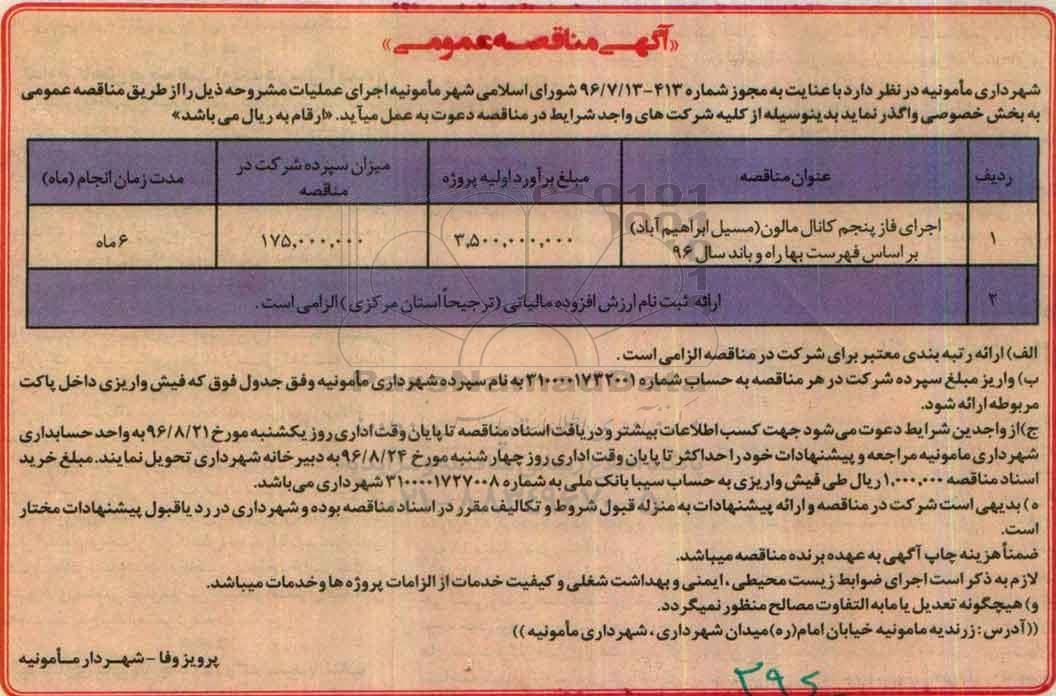 «آگهی مناقصه عمومی»
شهرداری مأمونیه در نظر دارد با عنایت به مجوز شماره ۴۱۳-۹۶/۷/۱۳ شورای اسلامی شهر مأمونیه اجرای عملیات مشروحه ذیل را از طریق مناقصه عمومی
به بخش خصوصی واگذر نماید بدینوسیله از کلیه شرکت های واجد شرایط در مناقصه دعوت به عمل میآید. «ارقام به ریال می باشد»
ردیف عنوان مناقصه مبلغ برآورد اولیه پروژه میزان سپرده شرکت در مدت زمان انجام (ماه)
مناقصه
۱ اجرای فاز پنجم کانال مالون (مسیل ابراهیم آباد) ۳,۵۰۰,۰۰۰,۰۰۰ ۱۷۵,۰۰۰,۰۰۰ ۶ ماه
بر اساس فهرست بها راه و باند سال ۹۶
۲ ارائه ثبت نام ارزش افزوده مالیاتی (ترجیحاً استان مرکزی) الزامی است.
الف) ارائه رتبه بندی معتبر برای شرکت در مناقصه الزامی است.
ب) واریز مبلغ سپرده شرکت در هر مناقصه به حساب شماره ۳۱۰۰۰۰۱۷۳۲۰۰۱ به نام سپرده شهرداری مأمونیه وفق جدول فوق که فیش واریزی داخل پاکت
مربوطه ارائه شود.
ج) از واجدین شرایط دعوت می شود جهت کسب اطلاعات بیشتر و دریافت اسناد مناقصه تا پایان وقت اداری روز یکشنبه مورخ ۹۶/۸/۲۱ به واحد حسابداری
شهرداری مامونیه مراجعه و پیشنهادات خود را حداکثر تا پایان وقت اداری روز چهارشنبه مورخ ۹۶/۸/۲۴ به دبیرخانه شهرداری تحویل نمایند. مبلغ خرید
اسناد مناقصه ۱,۰۰۰,۰۰۰ ریال طی فیش واریزی به حساب سیبا بانک ملی به شماره ۳۱۰۰۰۰۱۷۲۷۰۰۸ شهرداری می باشد.
ه) بدیهی است شرکت در مناقصه و ارائه پیشنهادات به منزله قبول شروط و تکالیف مقرر در اسناد مناقصه بوده و شهرداری در رد یا قبول پیشنهادات مختار
است.
ضمناً هزینه چاپ آگهی به عهده برنده مناقصه میباشد.
لازم به ذکر است اجرای ضوابط زیست محیطی، ایمنی و بهداشت شغلی و کیفیت خدمات از الزامات پروژه ها و خدمات میباشد.
و) هیچگونه تعدیل یا مابه التفاوت مصالح منظور نمیگردد.
((آدرس: زرندیه مامونیه خیابان امام(ره) میدان شهرداری، شهرداری مأمونیه))
پرویز وفا - شهردار مأمونیه